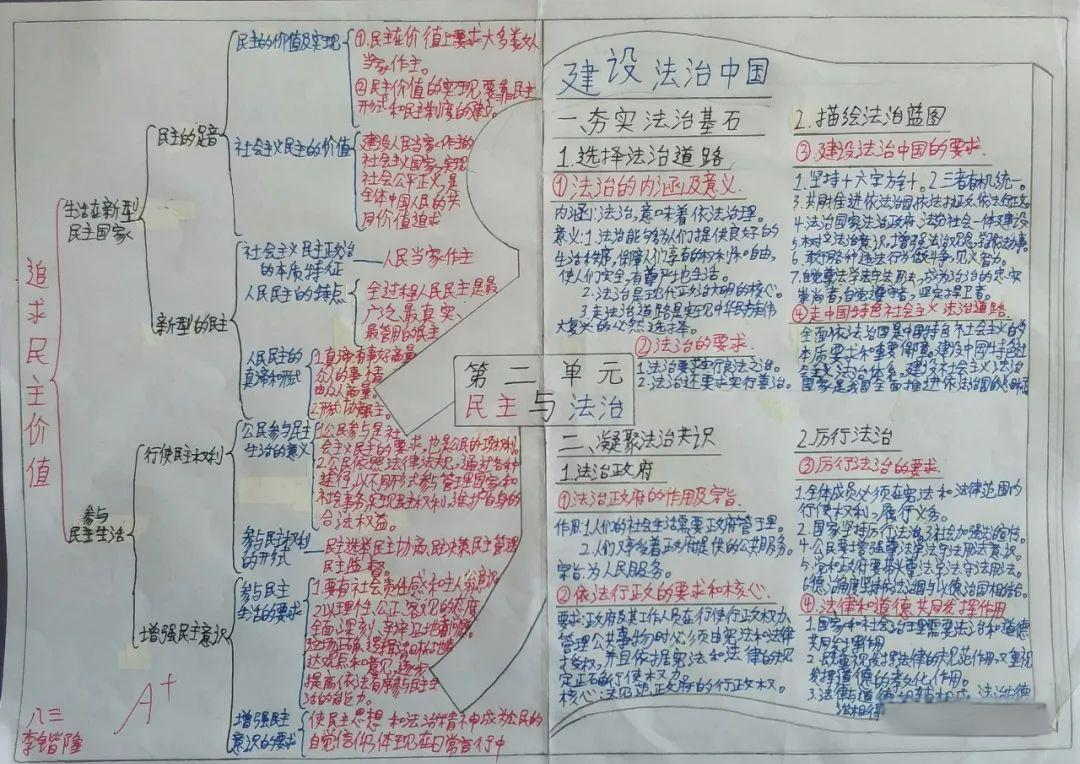 追求民主价值
生活在新型
民主国家
民主的足音
民主的价值及实现
①.民主在价值上要求大多数人
当家作主。
②民主价值的实现,要靠民主
形式和民主制度的建立。
社会主义民主的价值
建设人民当家作主的
社会主义国家,实现
社会公平正义,是
全体中国人民的共
同价值追求
新型的民主
社会主义民主政治
的本质特征
人民当家作主
人民民主的特点
全过程人民民主是最
广泛、最真实、
最管用的民主
人民民主的
真谛和形式
1.真谛:有事好商量
众人的事情
由众人商量。
2.形式:协商民主。
参与
民主生活
行使民主权利
公民参与民主
生活的意义
1.公民参与是社
会主义民主的要求,也是公民的一项权利。
2.公民依照法律法规,通过各种
途径,以不同形式参与管理国家和
社会事务,实现民主权利,维护自身的
合法权益。
参与民主权利
的形式
民主选举、民主协商、民主决策、民主管理、
民主监督。
增强民主意识
参与民主
生活的要求
1.要有社会责任感和主人翁意识。
2.以理性、公正、客观的态度
全面、深刻、
达观点和意见,逐步
提高依法有序参与民主生
活的能力。
增强民主
意识的要求
使民主思想和法治精神成为公民的
自觉信仰,体现在日常言行中
A+
八三
李锴隆
第二单元
民主与法治
建设法治中国
一、夯实法治基石
1.选择法治道路
①法治的内涵及意义.
内涵:法治,意味着依法治理。
意义:1.法治能够为人们提供良好的
生活秩序,保障人们享有的权利和自由,
使人们安全、有尊严地生活。
2.法治是现代政治文明的核心。
3.走法治道路是实现中华民族伟
大复兴的必然选择。
②法治的要求.
1.法治要求实行良法之治。
2.法治还要求实行善治。
2.描绘法治蓝图
③建设法治中国的要求.
1.坚持十六字方针。2.三者有机统一。
3.共同推进依法治国、依法执政、依法行政
4.法治国家、法治政府、法治社会一体建设
5.树立法治意识,增强法治观念,学法办事。
6.敢于同各种违法行为做斗争,见义智为。
7.自觉尊法学法守法用法,成为法治的忠实
崇尚者,自觉遵守者,坚定捍卫者。
④走中国特色社会主义法治道路.
全面依法治国是中国特色社会主义的
本质要求和重要保障。建设中国特色社
会主义法治体系、建设社会主义法治
国家是我国全面推进依法治国的总目标
二、凝聚法治共识
1.法治政府
①法治政府的作用及宗旨.
作用:1.人们的社会生活需要政府管理。
2.人们享受着政府提供的公共服务。
宗旨:为人民服务。
②依法行政的要求和核心.
要求:政府及其工作人员在行使行政权力、
管理公共事物时必须由宪法和法律
授权,并且依据宪法和法律的规
定正确行使权力。
核心:法规范政府的行政权。
2.厉行法治
③厉行法治的要求.
1.全体成员必须在宪法和法律范围内
行使权利,履行义务。
4.公民要增强尊法学法守法用法意识。
5.党和政府要带头尊法学法守法用法。
④.法律和道德共同发挥作用
1.国家和社会治理需要法治和道德
共同发挥作用
2.既重视发挥法律的规范作用,又重视
发挥道德的教化作用。
3.法律与道德相辅相成、法治与德
治相得